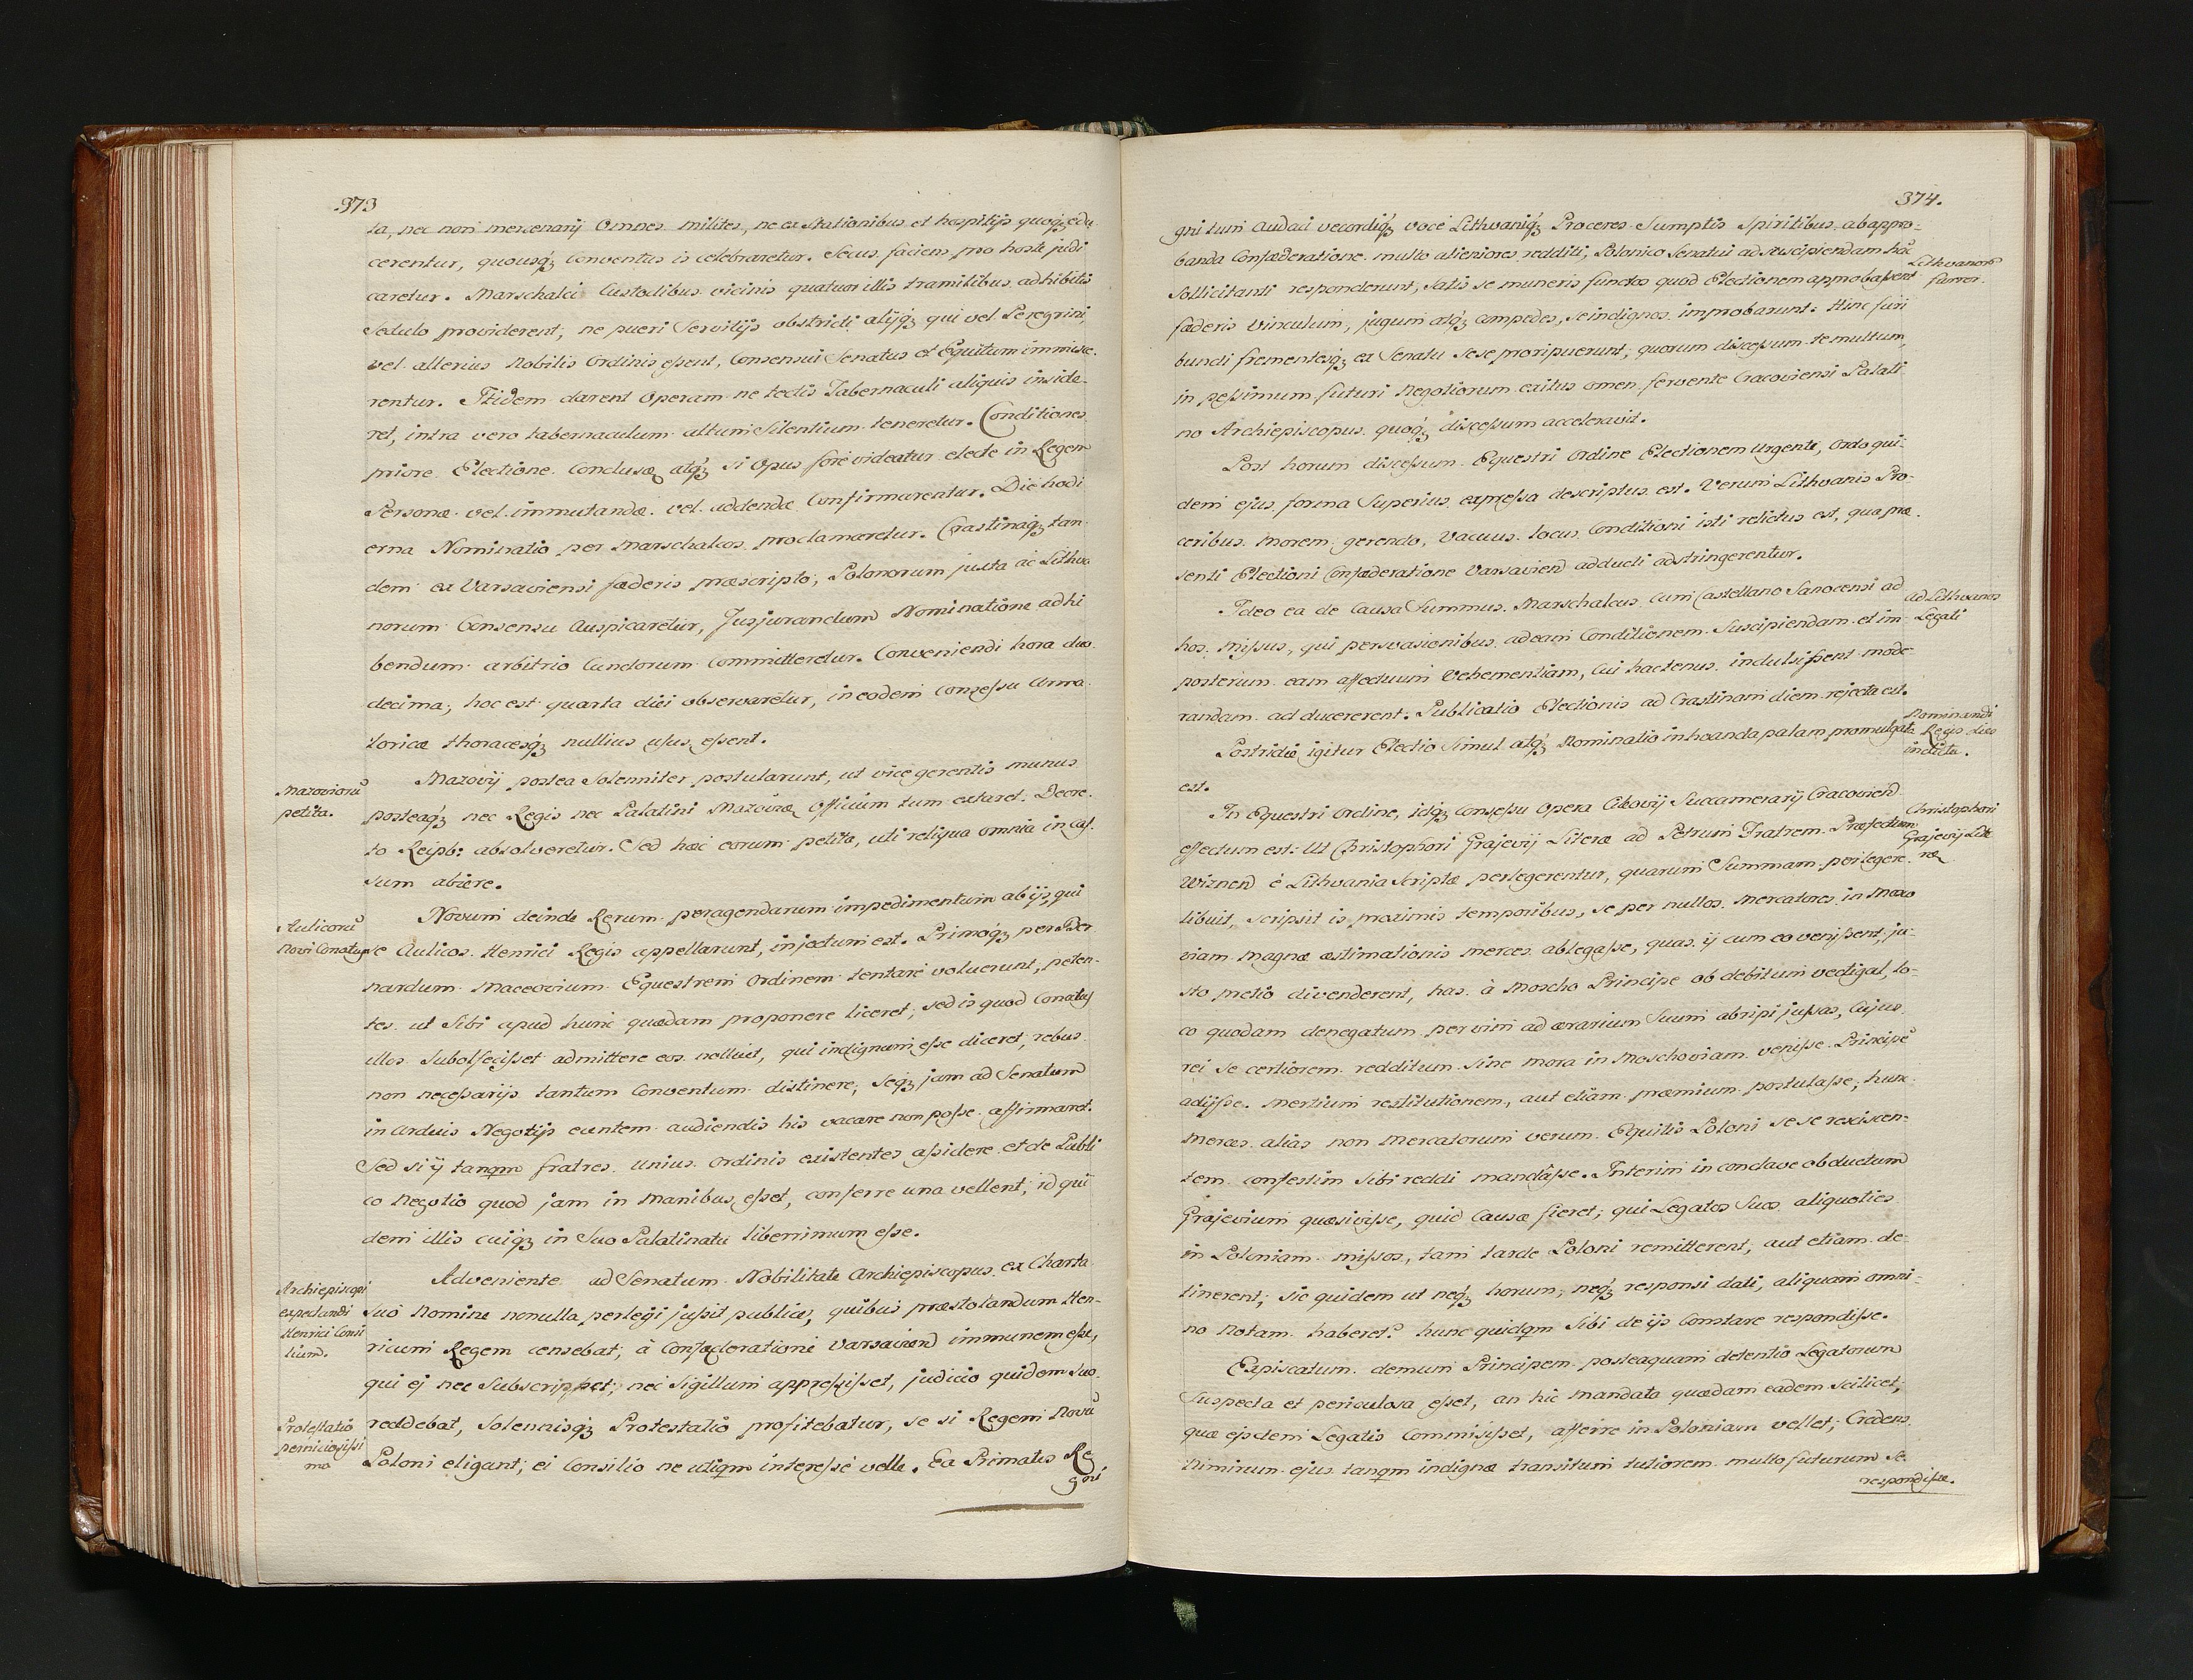 373
ta, nec non mercenarij Omnes milites, ne ex Stationibus et hospitijs quoqȝ edu
cerentur, quousqȝ Conventus is celebraretur. Secus faciens pro hoste judi
caretur. Marschalci Custodibus vicinis quatuor illis tramitibus adhibitis
Sedulo providerent; ne pueri Servitijs obstricti alijqȝ qui vel Peregrini,
vel alterius Nobilis Ordinis eſsent, Consensui Senatus et Equitum immisce-
rentur. Itidem darent Operam ne tectis Tabernaculi aliquis inside-
ret, intra vero tabernaculum altum Silentium teneretur. Conditiones
priore Electione Conclusæ atqȝ si Opus fore videatur electe in Regem
Personæ vel immutandæ vel addendæ Confirmarentur. Die hodi
erna Nominatio per Marschalcos proclamaretur. Crastinaqȝ tan
dem ex Varsaviensi fæderis præscripto, Polonorum juxta ac Lithva
norum Consensu Auspicaretur, Jusjurandum Nominatione adhi
bendum arbitrio Cunctorum Committeretur. Conveniendi hora duo
decima; hoc est quarta diei observaretur, in eodem Conseſsu Arma
loricæ thoracesqȝ nullius usus eſsent.
Mazoviorũ
petita.
Mazovij postea Solenniter postularunt, ut vice gerentis munus
posteaqȝ nec Regis nec Palatini Mazoviæ Officium tum extaret. Decre-
to Reipb: absolveretur. Sed hæc eorum petita, uti reliqua omnia in caſ-
sum abiere.
Aulicorũ
novi Conatuſ
Novum deinde Rerum peragendarum impedimentum ab ijs, qui
se Aulicos Henrici Regis appellarunt, injectum est. Primoqȝ per Ber
nardum Maceovium Equestrem Ordinem tentare voluerunt, peten-
tes ut Sibi apud hunc quædam proponere liceret; sed is quod Conatuſ
illos Subolfeciſset admittere eos nolluit, qui indignum eſse diceret, rebus
non neceſsarijs tantum Conventum distinere; Seqȝ jam ad Senatum
in Arduis Negotijs euntem audiendis his vacare non poſse affirmaret.
Sed si ij tanqm fratres unius Ordinis existentes aſsidere et de Publi
co Negotio quod jam in Manibus eſset, conferre una vellent; id qui
dem illis cuiqȝ in Suo Palatinatu liberrimum eſse.
Archiepiscopi
expectandi
Henrici Consi
lium.
Adveniente ad Senatum Nobilitate Archiepiscopus ex Charta
Suo Nomine nonulla perlegi juſsit publice; quibus præstolandum Hen-
ricum Regem censebat; à Confæderatione Varsavien immunem eſse,
qui ej nec Subscripſset; nec Sigillum appreſsiſset, judicio quidem Suo
Protestatio
perniciosiſsi
ma
reddebat, Solennisqȝ Protestatio profitebatur, se si Regem Novũ
Poloni eligant; ei Consilio ne utiqm intereſse velle. Ea Primatis Re
gni
374.
gni tum audaci vecordiqȝ voce Lithvaniqȝ Proceres Sumptis Spiritibus ab appro-
banda Confæderatione multo alieniores redditi, Polonico Senatui ad Suscipiendam hãc
Lithvanorũ
furror.
Sollicitanti responderunt, Satis se muneris functos quod Electionem approbaſsent
fæderis Vinculum, jugum atqȝ Compedes, se indignos improbarunt: Hinc furi
bundi frementesqȝ ex Senatu Sese proripuerunt; quorum disceſsum temultum
in peſsimum futuri Negotiorum exitus omen fervente Cracoviensi Palati
no Archiepiscopus quoqȝ disceſsum acceleravit.
Post horum disceſsum Equestri Ordine Electionem Urgente, Ordo qui-
dem ejus forma Superius expreſsa descriptus est. Verum Lithvanis Pro-
ceribus Morem gerendo, Vacuus locus Conditioni isti relictus est, qua præ
senti Electioni Confæderatione Varsavien adducti adstringerentur.
Ad Lithvanos
Legati
Ideo ea de Causa Summus Marschalcus cum Castellano Sanocensi ad
hos miſsus, qui persvasionibus ad eam Conditionem Suscipiendam et im-
posterum eam affectuum Vehementiam, Cui hactenus indulsiſsent mode
randam ad ducererent. Publicatio Electionis ad Crastinam diem rejecta est.
Nominandi
Regis dies
indicta.
Postridie igitur Electio Simul atqȝ Nominatio inhoanda palam promulgata
est.
In Equestri Ordine, idqȝ Conseſsu Opera Cikovij Succamerarij Cracovien
Christophori
Grajevij Lite
ræ
effectum est: Ut Christophori Grajevij Literæ ad Petrum Fratrem Præfectum
Wiznen è Lithvania Scriptæ perlegerentur, quarum Summam perlegere
libuit, Scripsit is proximis temporibus, se per nullos Mercatores in Mosco
viam magnæ æstimationis merces ablegaſse, quas ij cum eo veniſsent, ju-
sto pretio divenderent, has à Moscho Principe ob debitum vectigal, lo-
co quodam denegatum per vim ad ærarium Suum abripi juſsas, Cujus
rei Se certiorem redditum Sine mora in Moschoviam veniſse. Principẽ
adijſse. Mertium restitutionem, aut etiam præmium postulaſse; hunc
Merces alias non Mercatorum verum Equitis Poloni se se resciscen-
tem confestim Sibi reddi mandâſse. Interim in conclave obductum
Grajevium quæsiviſse, quid Causæ fieret; qui Legatos Suos aliquoties
in Poloniam miſsos, tam tarde Poloni remitterent, aut etiam de-
tinerent; sic quidem ut neqȝ horum, neqȝ responsi dati, aliquam omni-
no Notam haberet? hunc quidqm Sibi de ijs Constare respondiſse.
Expiscatum demum Principem posteaquam detentio Legatorum
Suspecta et periculosa eſset, an hic mandata quædam eadem Scilicet,
quæ ejsdem Legatis Commisiſset, afferre in Poloniam vellet; Credens
Nimirum ejus tanqm indignæ transitum tutiorem multo futurum Se
respondiſse.